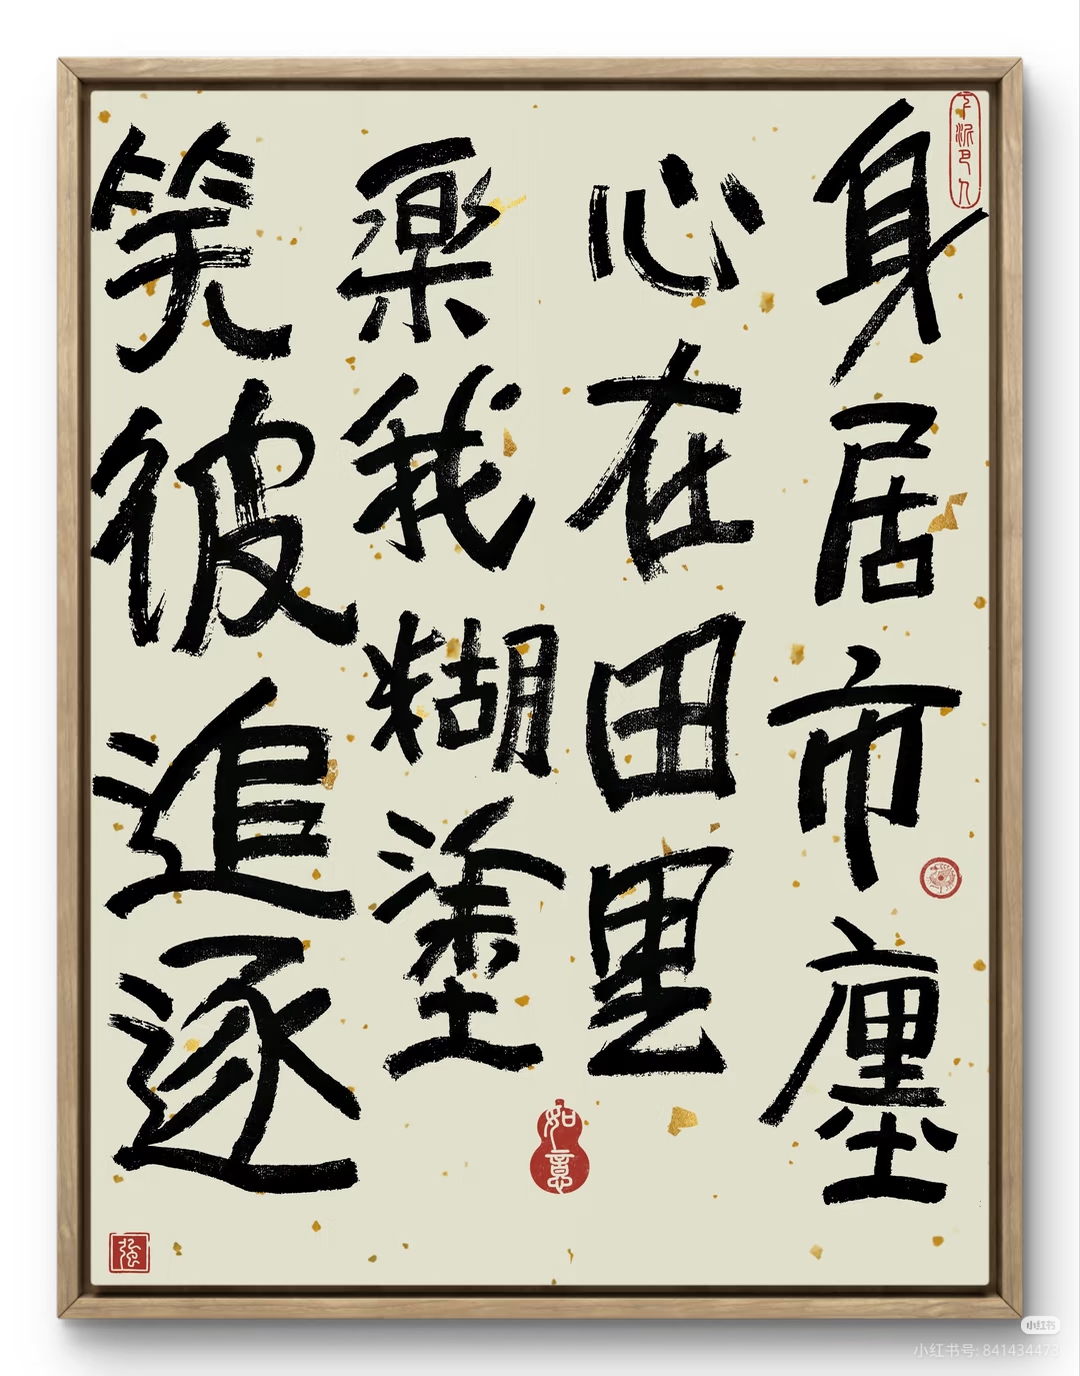 身居市廛
心在田里
樂我糊塗
笑彼追逐
如意
強
小红书
小红书号: 841434473